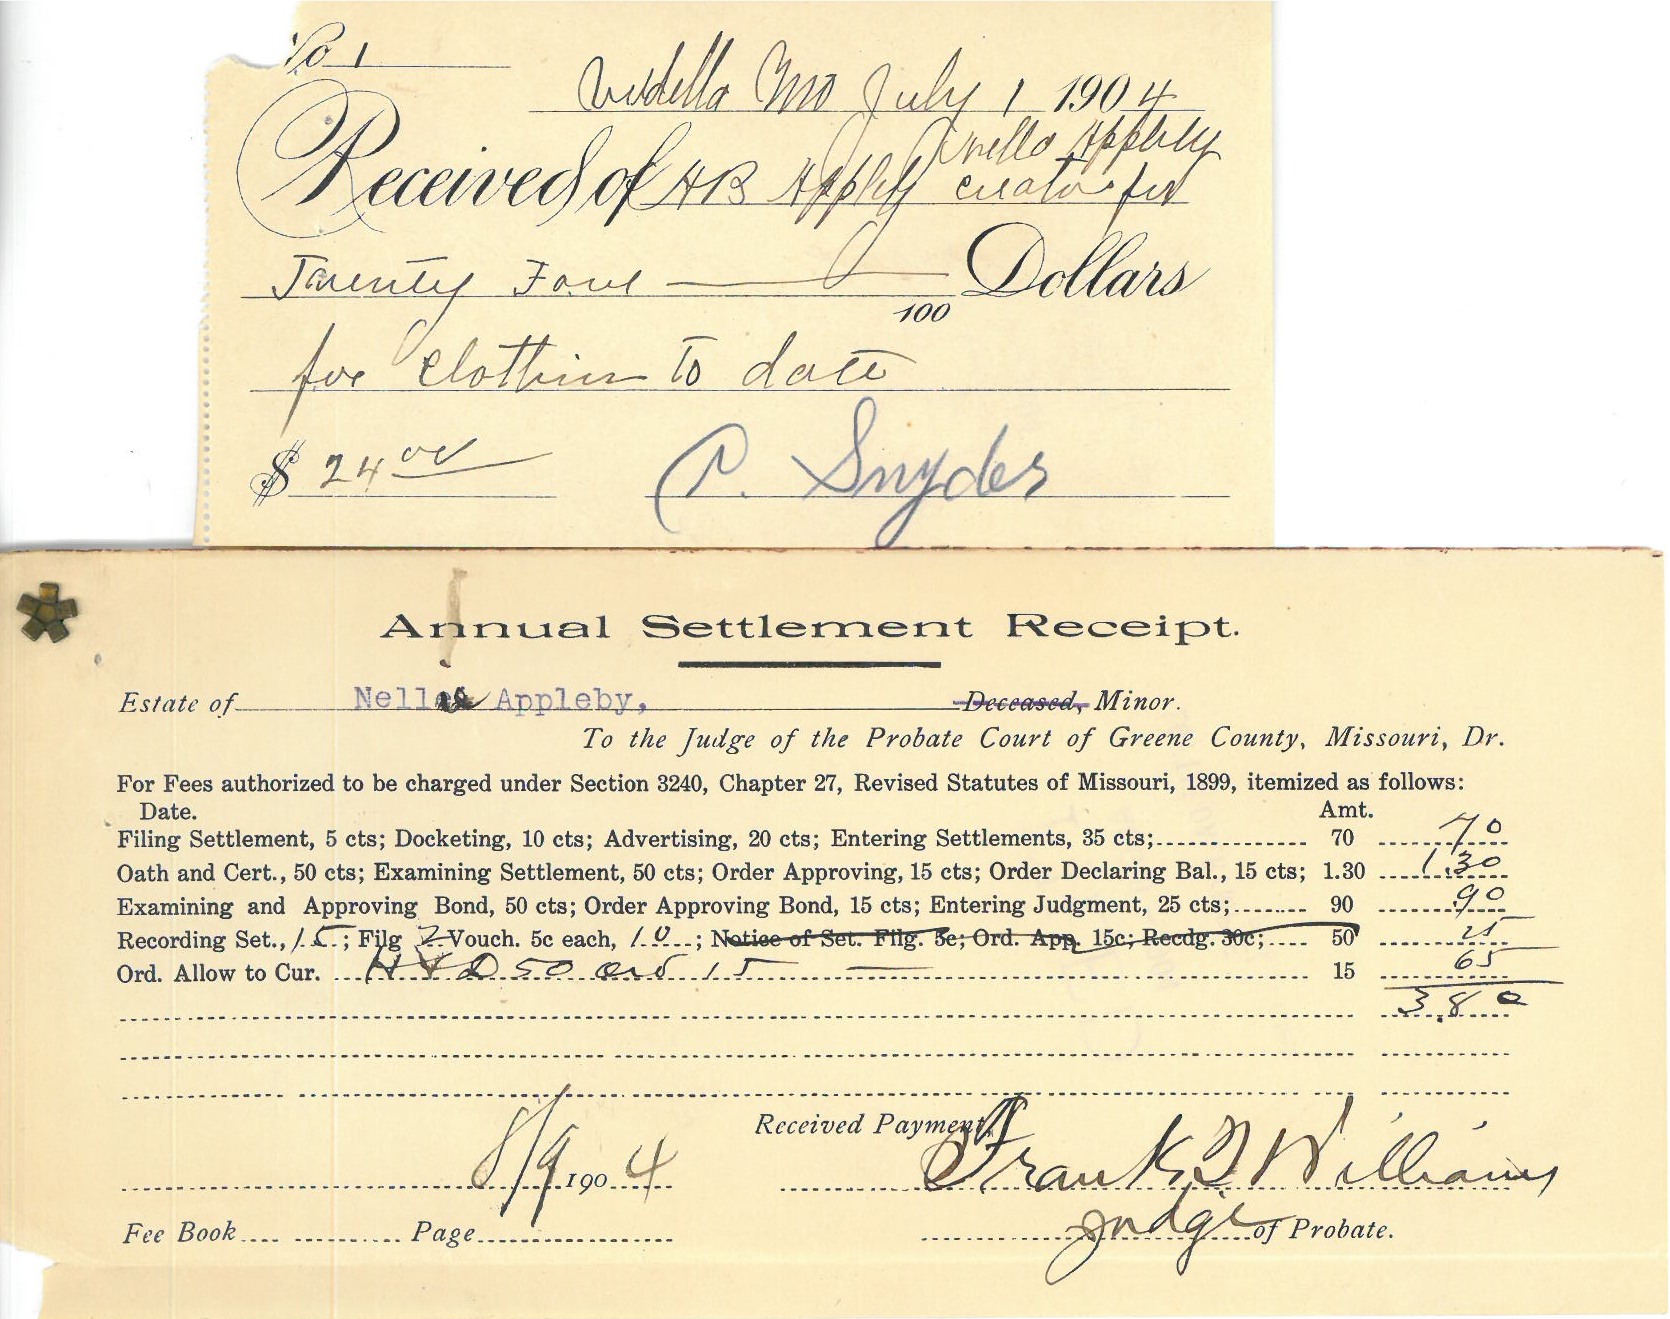 No 1
Mo July 1 1904
Nello Appleby
Received of HB Appleby curator for
Twenty Four Dollars
100
for Clothing To date
$ 24 00 P. Snyder
Annual Settlement Receipt.
Estate of Nell Appleby, Deceased, Minor.
To the Judge of the Probate Court of Greene County, Missouri, Dr.
For Fees authorized to be charged under Section 3240, Chapter 27, Revised Statutes of Missouri, 1899, itemized as follows:
Date. Amt.
Filing Settlement, 5 cts; Docketing, 10 cts; Advertising, 20 cts; Entering Settlements, 35 cts; 70 70
Oath and Cert., 50 cts; Examining Settlement, 50 cts; Order Approving, 15 cts; Order Declaring Bal., 15 cts; 1.30 1.30
Examining and Approving Bond, 50 cts; Order Approving Bond, 15 cts; Entering Judgment, 25 cts; 90 90
Recording Set., 15; Filg 2 Vouch. 5c each, 10; Notice of Set. Filg. 5c; Ord. App. 15c; Recdg. 30c; 50 25
Ord. Allow to Cur. 50 ord 15 15 65
3.80
Received Payment,
8/9 1904 Frank T Williams
Fee Book Page Judge of Probate.